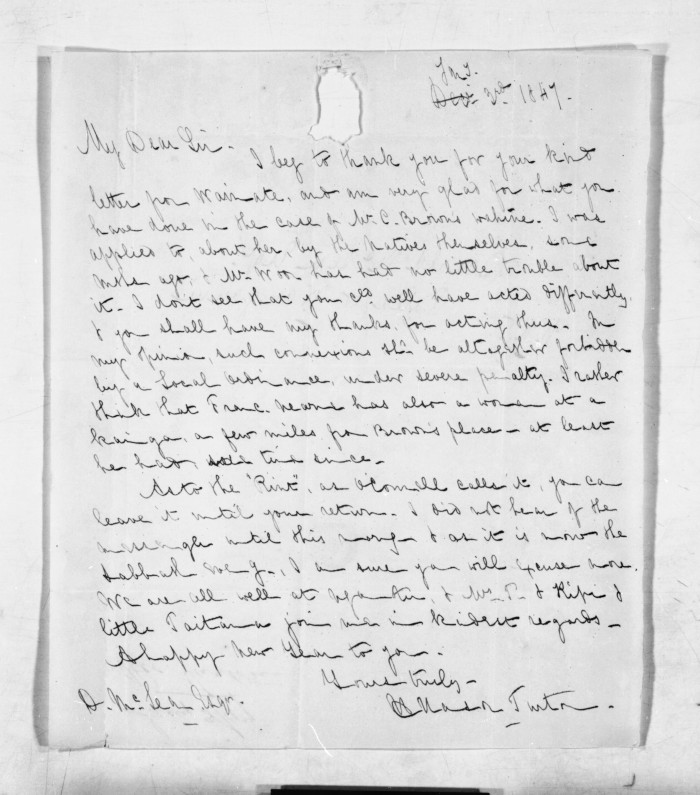 Jny.
Dec 3rd. 1847.
My Dear Sir -
I beg to thank you for your kind
letter from Waimate, and am very glad for what you
have done in the case of Mr. C. Brown's wahine. I was
applied to, about her, by the Natives themselves, some
mths ago, & Mr. Woon has had no little trouble about
it. I don't see that you cld. well have acted differently,
& you shall have my thanks for acting thus. In
my opinion, such connexions shd. be altogether forbidden
by a Local ordinance, under severe penalty. I rather
think that Franc. has also a woman at a
kainga, a few miles from Brown's place - at least
he had time since -
As to the "Rint", as O'Connell calls it, you can
leave it until your return. I did not hear of the
messenger until this morng & as it is now the
Sabbath eveg., I am sure you will excuse more.
We are all well at & Mrs. T. & Kipi &
little Taitana join me in kindest regards -
A happy New Year to you.
Yours truly -
H Hanson Turton.
D. McLean Esqr.